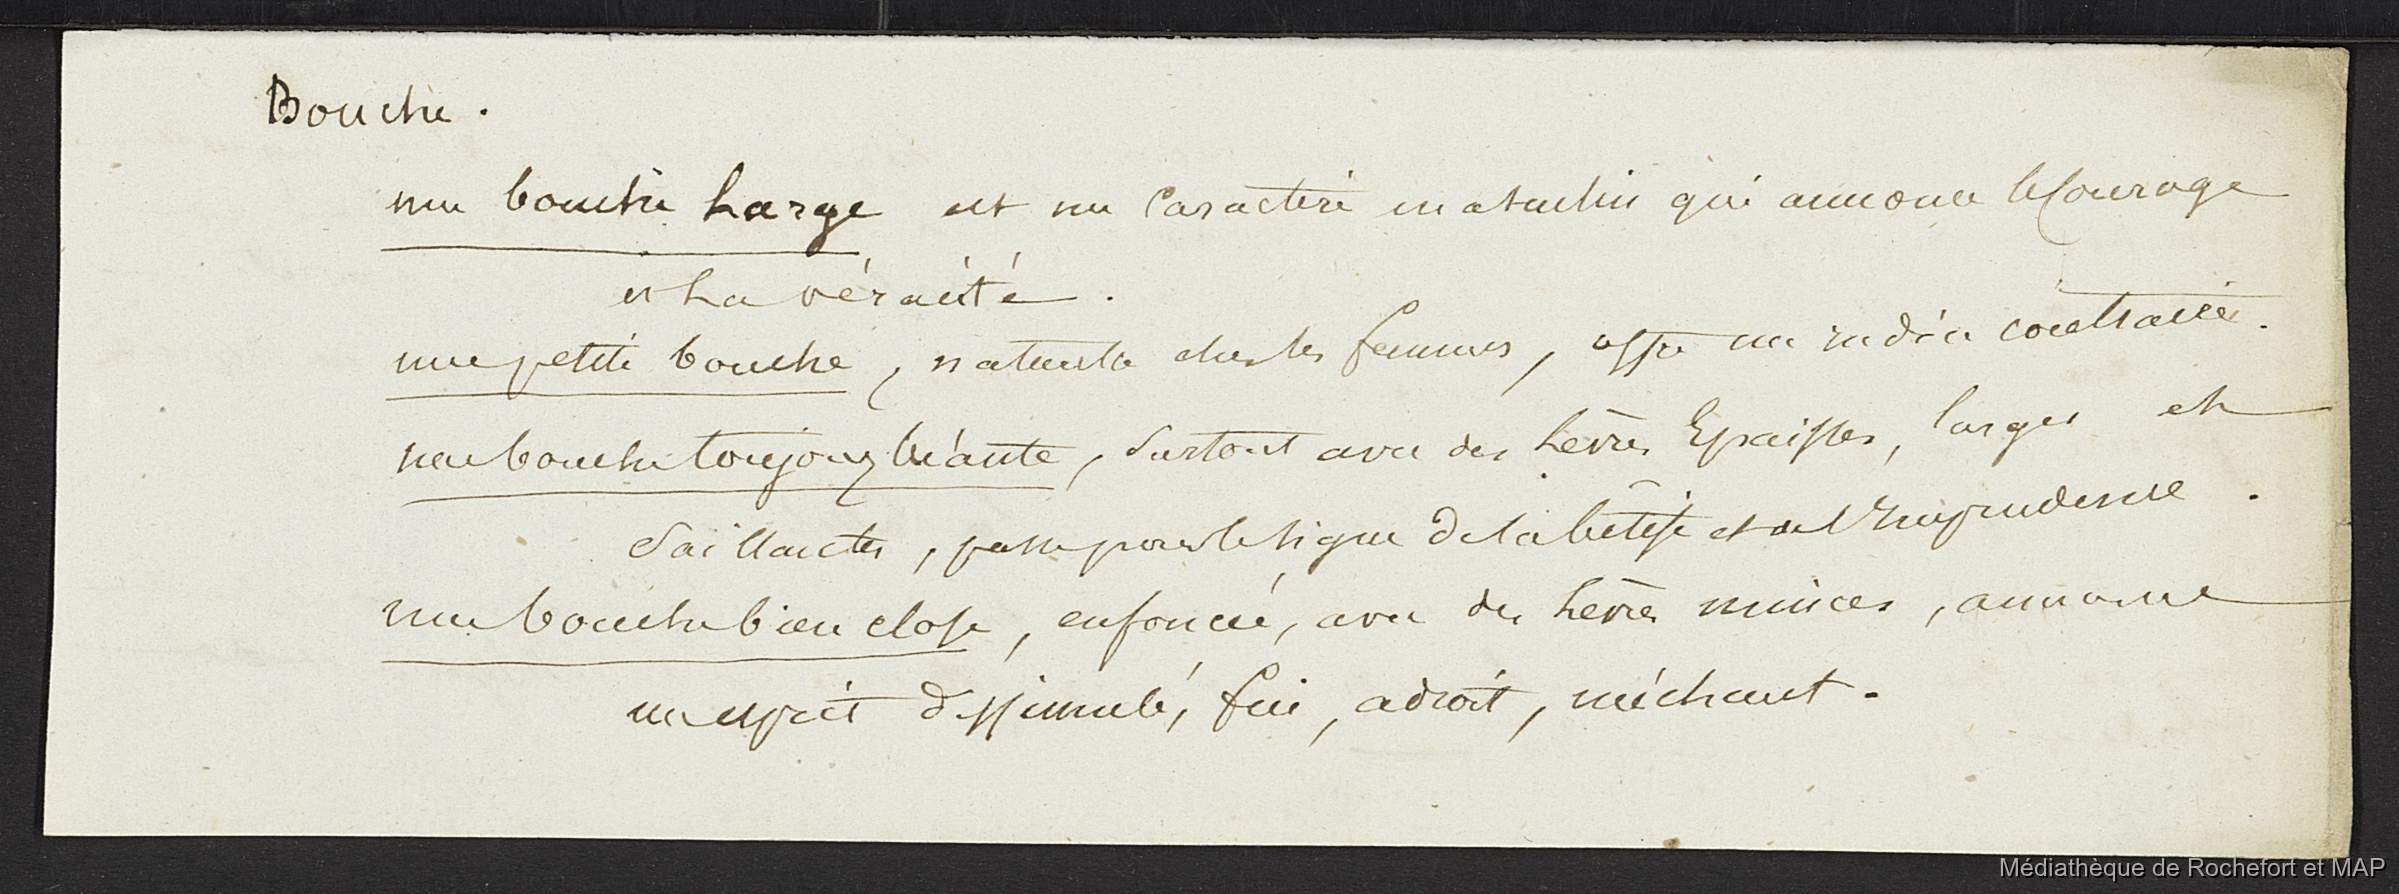 Bouche.
une bouche Large est un Caractère masculin qui annonce le Courage
et La véracité.
une petite bouche, naturelle chez les femmes, offre un indice contraire.
une bouche toujours béante, surtout avec des Lèvres Epaisses, larges et
Saillantes, passe pour le signe de la bêtise et de l'Imprudence.
une bouche bien close, enfoncée, avec des Lèvres minces, annonce
un esprit dissimulé, fin, adroit, méchant.
Médiathèque de Rochefort et MAP